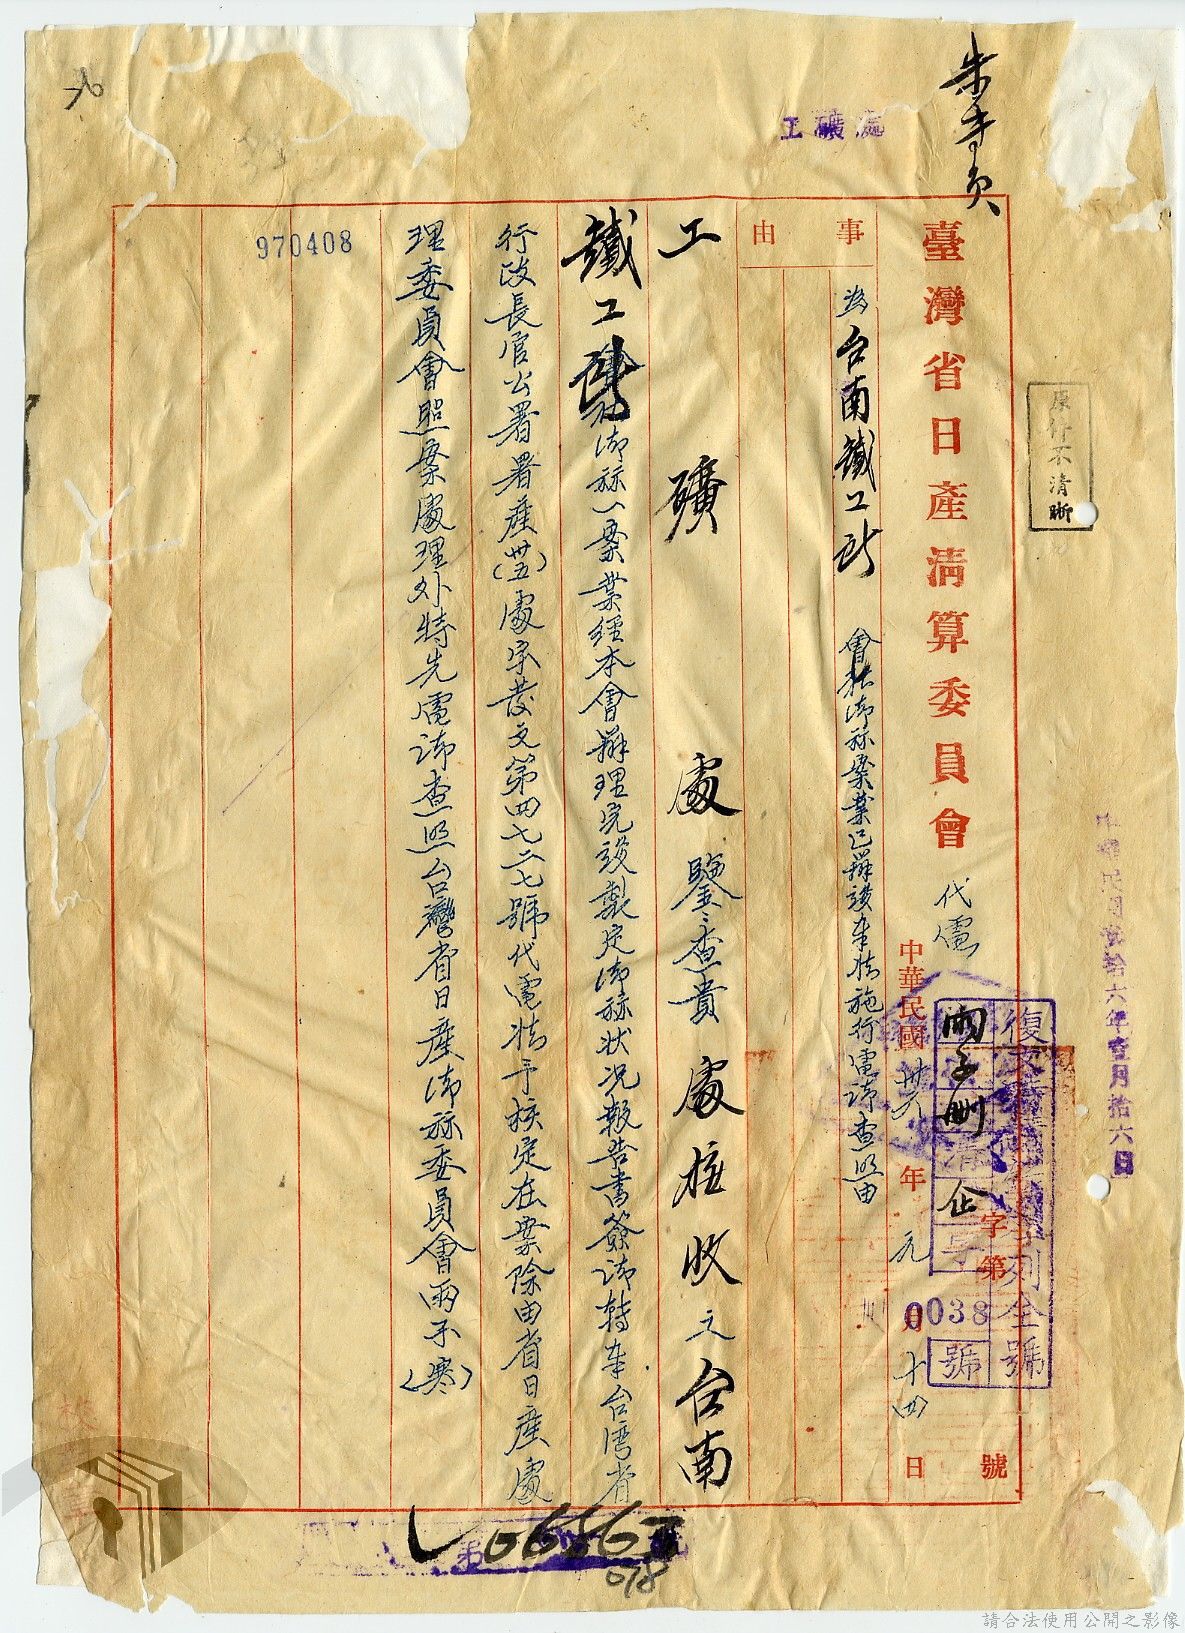 工礦處
原件不清晰
臺灣省日產清算委員會 代電
中華民國卅六年元月十四日
字第0038號
中華民國叁拾六年壹月拾六日
事由
為台南鐵工所 會社清算案業已辦竣奉准施行電請查照由
工礦處鑒查貴處接收之台南
鐵工所清算一案業經本會辦理完竣製定清算狀況報告書簽請轉奉台灣省
行政長官公署署產(卅五)處字發文第四七二七號代電准予核定在案除由省日產處
理委員會照案處理外特先電請查照台灣省日產清算委員會雨子(寒)
970408
請合法使用公開之影像